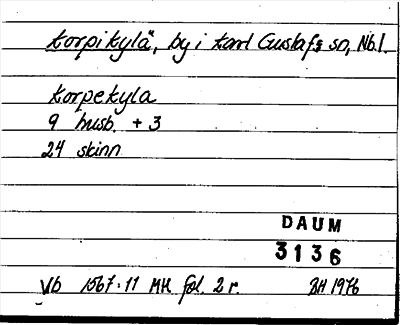 Korpikylä, by i Karl Gustafs sn, Nb.l.
Korpekyla
9 husb. + 3
24 skinn
DAUM
3136
Vb 1567:11 MH fol. 2 r. BH 1976